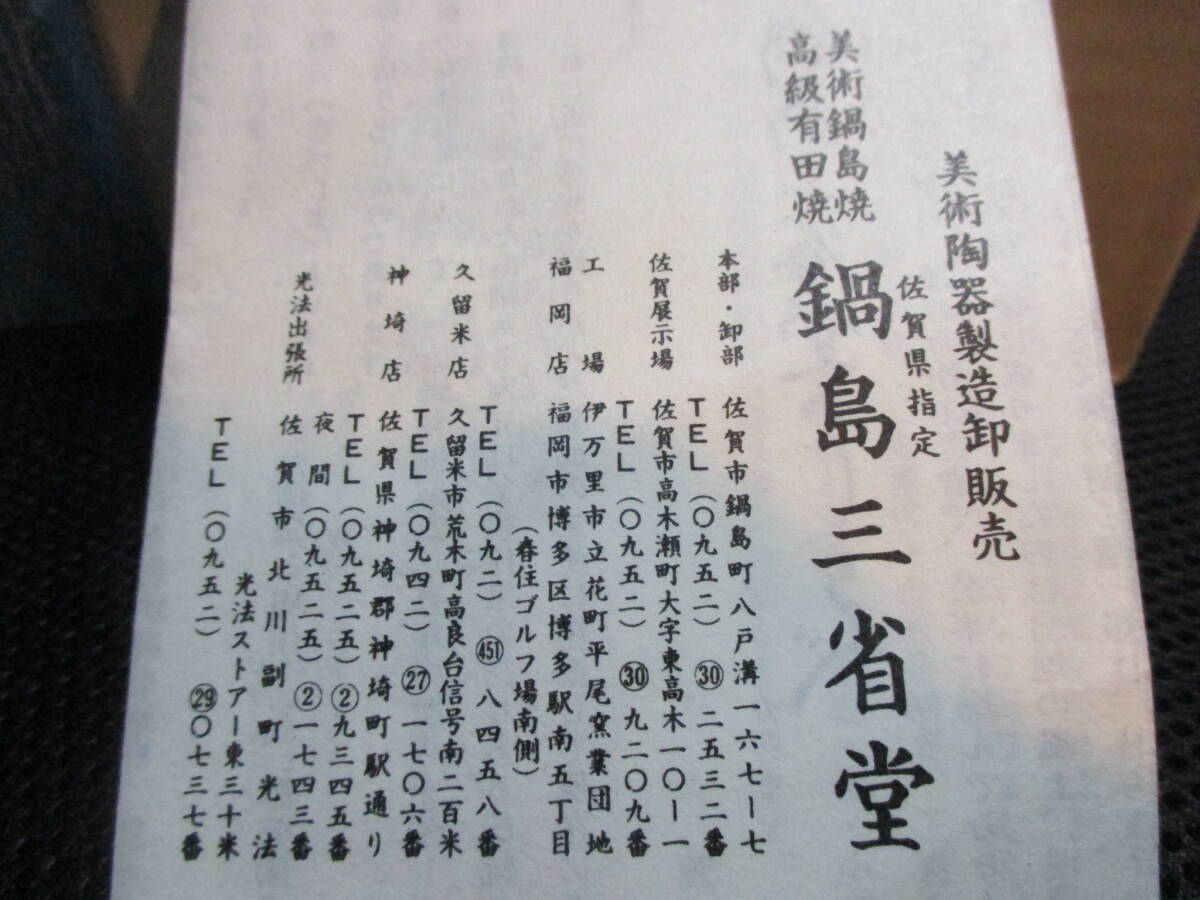 美術陶器製造卸販売
佐賀県指定
美術鍋島焼
高級有田焼
鍋島三省堂
本部・卸部 佐賀市鍋島町八戸溝一六七ー七
TEL(〇九五二)㉚二五三二番
佐賀展示場 佐賀市高木瀬町大字東高木一〇ー一
TEL(〇九五二)㉚九二〇九番
工場 伊万里市立花町平尾窯業団地
福岡店 福岡市博多区博多駅南五丁目
(春住ゴルフ場南側)
TEL(〇九二)(451)八四五八番
久留米店 久留米市荒木町高良台信号南二百米
TEL(〇九四二)㉗一七〇六番
神埼店 佐賀県神埼郡神埼町駅通り
TEL(〇九五二五)②九三四五番
夜間(〇九五二五)②一七四三番
光法出張所 佐賀市北川副町光法
光法ストアー東三十米
TEL(〇九五二)㉙〇七三七番